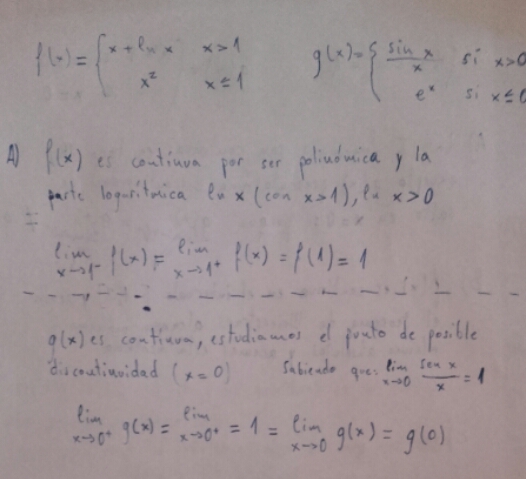 f(x) = { x + ln x   x > 1
x²   x ≤ 1
g(x) = { sin x / x   si x > 0
eˣ   si x ≤ 0
A) f(x) es continua por ser polinómica y la
parte logarítmica ln x (con x > 1), ln x > 0
=
lim x→1⁻ f(x) = lim x→1⁺ f(x) = f(1) = 1
g(x) es continua, estudiamos el punto de posible
discontinuidad (x = 0)   Sabiendo que: lim x→0 sen x / x = 1
lim x→0⁺ g(x) = lim x→0⁺ = 1 = lim x→0 g(x) = g(0)